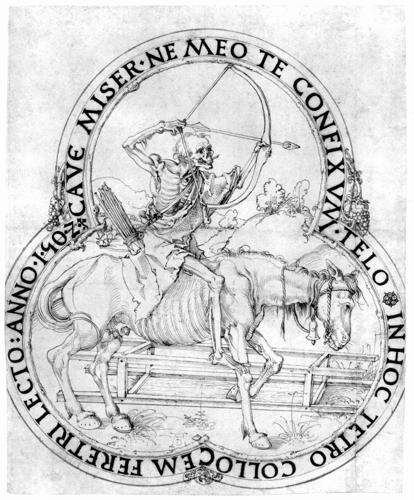 CAVE MISER · NE MEO TE CONFIXVM · TELO IN HOC TETRO COLLOCEM FERETRI LECTO : ANNO · 1502